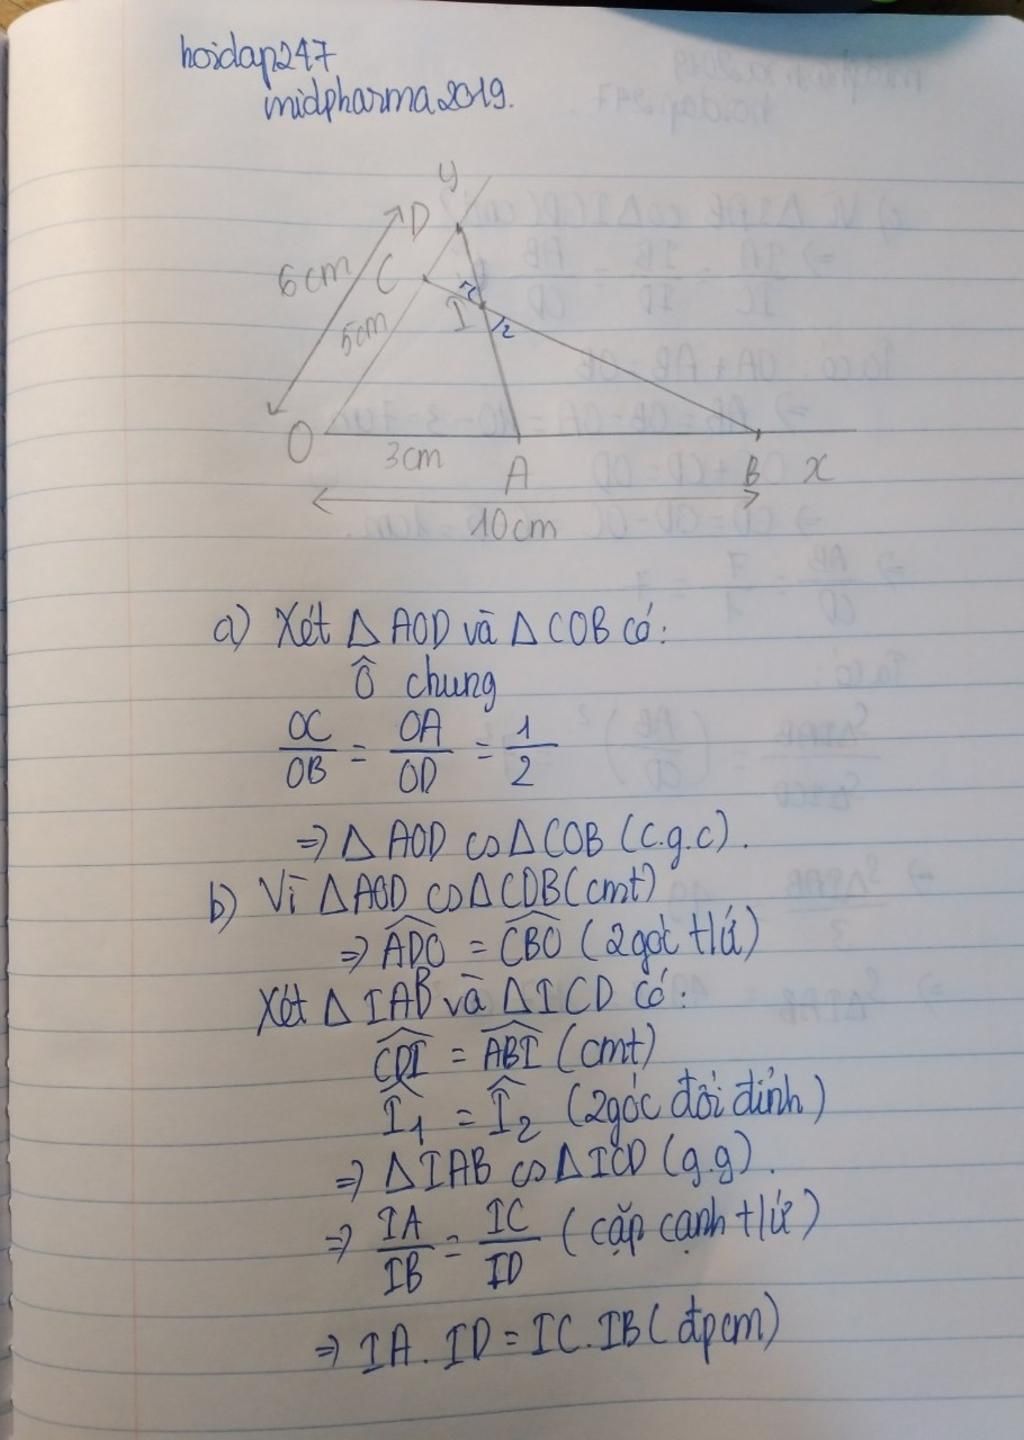 hoidap247
midpharma2019.
y
D
6cm
C
2
I
5cm
1
O
3cm
A
B
x
10cm
a) Xét Δ AOD và Δ COB có:
Ô chung
OC/OB = OA/OD = 1/2
⇒ Δ AOD ∽ Δ COB (c.g.c).
b) Vì Δ AOD ∽ Δ COB (cmt)
⇒ \widehat{ADO} = \widehat{CBO} (2 góc t/ứ)
Xét Δ IAB và Δ ICD có:
\widehat{CDI} = \widehat{ABI} (cmt)
Î₁ = Î₂ (2 góc đối đỉnh)
⇒ Δ IAB ∽ Δ ICD (g.g).
⇒ IA/IB = IC/ID (cặp cạnh t/ứ)
⇒ IA. ID = IC. IB (đpcm)